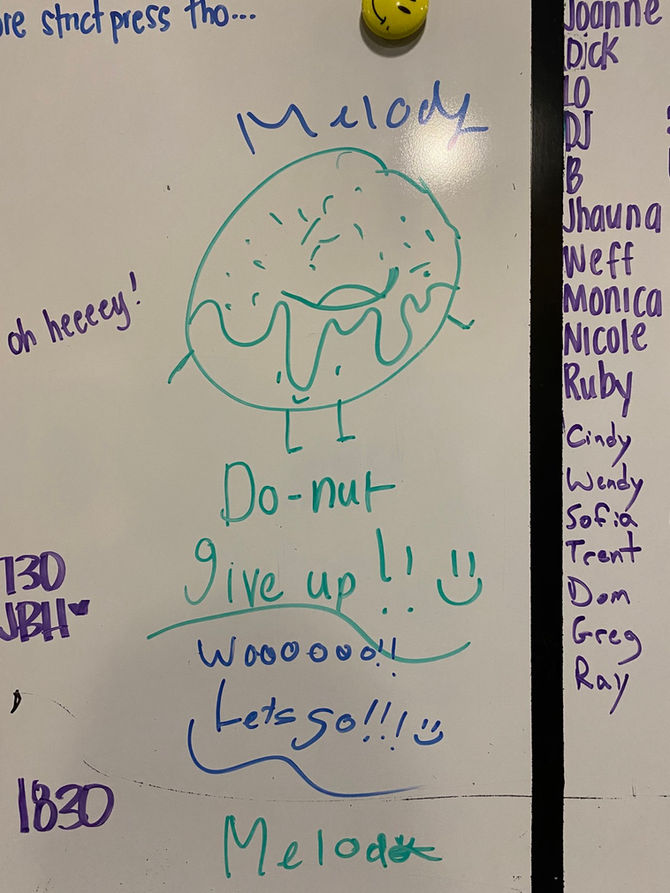 ore strict press tho...
Melody
oh heeeey!
Do-nut
give up!!
730
JBH
Wooooooo!!
Lets go!!!
1830
Melod
Joanne
Dick
LO
DJ
B
Jhauna
Weff
Monica
Nicole
Ruby
Cindy
Wendy
Sofia
Trent
Dom
Greg
Ray